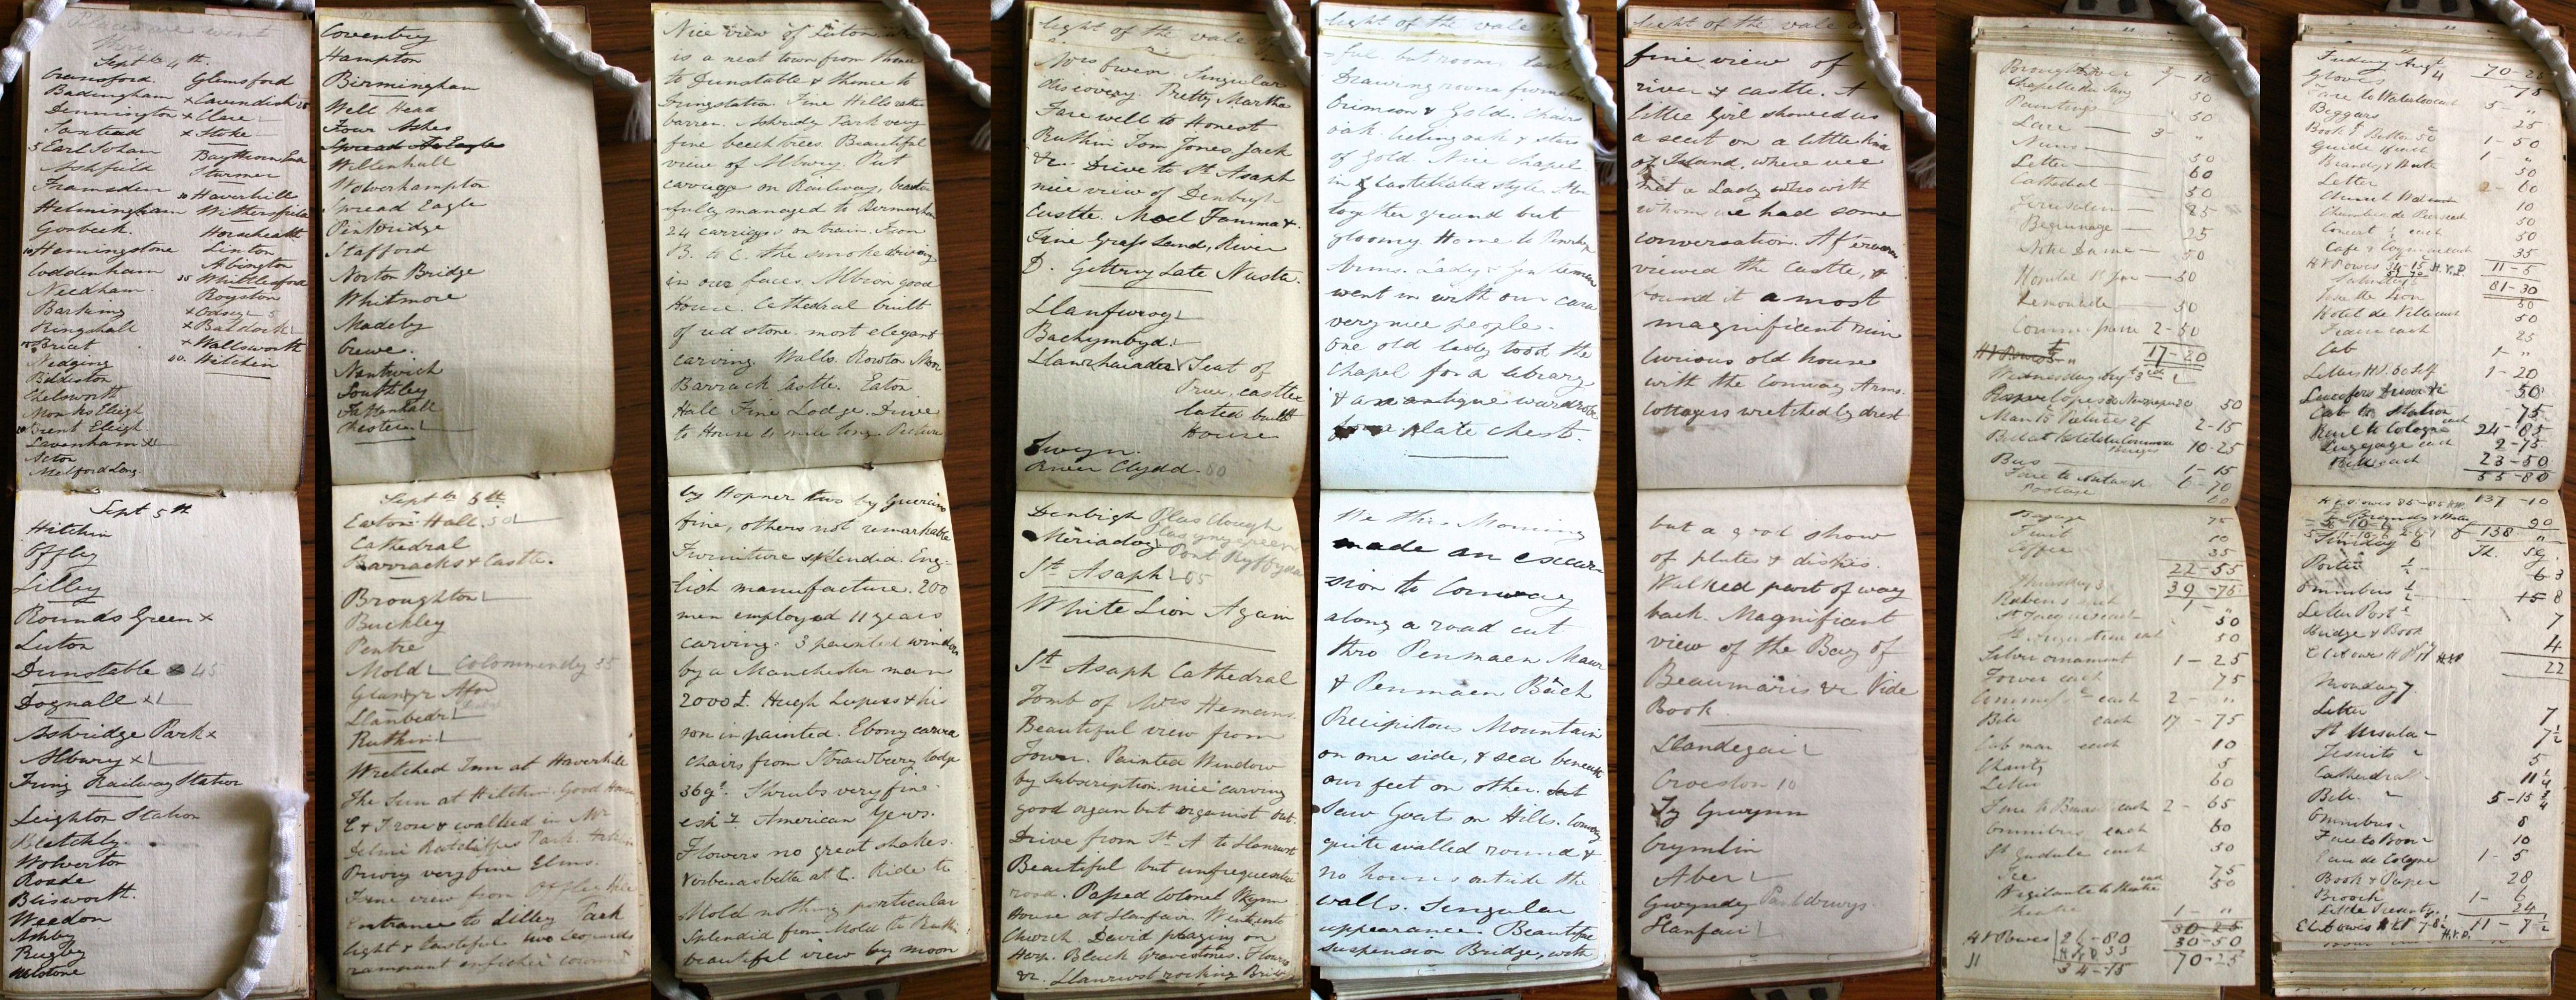 Places we went
thro
Septbr 4th.
Cransford. Glemsford
Badingham x Cavendish 25
Dennington x Clare
Saxtead x Stoke
5 Earl Soham Baythorn End
Ashfield Sturmer
Framsden 30 Haverhill
Helmingham Withersfield
Gosbeck. Horseheath
10 Hemingstone Linton
Coddenham Abington
Needham. 35 Whittlesford
Barking Royston
Ringshall x Odsey
15 Bricet x Baldock
Nedging x Wallsworth
Bildeston 40. Hitchin
Chelsworth
Monks Eleigh
20 Brent Eleigh
Lavenham x
Acton
Melford Long.
Sept 5th
Hitchin
Offley
Lilley
Rounds Green x
Luton
Dunstable 45
Dagnall x
Ashridge Park x
Albury x
Tring Railway Station
Leighton Station
Bletchly
Wolverton
Roade
Blisworth.
Weedon
Ashby
Rugby
Coventry
Hampton
Birmingham
Well Head
Four Ashes
Spread Eagle
Willenhall
Wolverhampton
Spread Eagle
Penkridge
Stafford
Norton Bridge
Whitmore
Madeley
Crewe.
Nantwich
Southley
Tattenhall
Chester.
Septbr 6th
Eaton Hall. 50
Cathedral
Barracks & Castle.
Broughton
Buckley
Pentre
Mold Colommendy 55
Glanyr Afon
Llanbedr
Ruthin
Wretched Inn at Haverhill
The Sun at Hitchin. Good House
C & I rose & walked in Mr
Delmé Ratcliffes Park. Hitchin
Priory very fine Elms.
Fine view from Offley Hill
Entrance to Lilley Park
light & beautiful two leopards
rampant
Nice view of Luton
is a neat town from thence
to Dunstable & thence to
Tring station. Fine Hills rather
barren. Ashridge Park very
fine beech trees. Beautiful
view of Albury. Put
carriage on Railway, beauti
fully managed to Birmingham
24 carriages on train. From
B. to C. the smoke driving
in our faces. Albion good
House. Cathedral built
of red stone. most elegant
carving. Walls. Rowton Moor
Barrack Castle. Eaton
Hall Fine Lodge. Drive
to House 2 mile long. Pictures
by Hopner two by Guercino
fine, others not remarkable
Furniture splendid. Eng-
lish manufacture. 200
men employed 11 years
carving. 3 painted windows
by a Manchester man
2000£. Hugh Lupus & his
son in painted. Ebony carved
chairs from Strawbery lodge
36gs. Shrubs very fine.
esply American Yews.
Flowers no great shakes.
Verbenas better at C. Ride to
Mold nothing particular
Splendid from Mold to Ruthin
beautiful view by moon
light of the vale of
Mrs Ewen. Singular
discovery. Pretty Martha
Farewell to Honest
Ruthin Tom Jones, Jack
&c. Drive to St Asaph
nice view of Denbigh
Castle. Moel Famma &.
Fine Grass Land, River
D. Getting Late Nuste.
Llanfwrog
Bachymbyd.
Llanrhaiadr Seat of
Price, castle
lated built
House
Gwyn.
River Clydd. 60
Denbigh Plas Clough
Meriadog
St Asaph 65
White Lion Again
St Asaph Cathedral
Tomb of Mrs Hemans.
Beautiful view from
Tower. Painted Window
by Subscription. nice carving
good organ but organist out.
Drive from St A to Llanrwst
Beautiful but unfrequented
road. Passed Colonel Wynn
House at Llanfair. Went into
Church. David playing on
Harp. Black Gravestones. Flowers
&c. Llanrwst rocking Bridge
light of the vale
-ful but rooms dark
Drawing rooms
Crimson & Gold. Chairs
oak. Ceiling oak & stars
of gold. Nice Chapel
in Castellated style. Al-
together grand but
gloomy. Home to Penrhyn
Arms. Lady & Gentleman
went in with our card
very nice people.
One old lady took the
Chapel for a library
& an antique wardrobe
for a plate chest.
We this Morning
made an excur
sion to Conway
along a road cut
thro Penmaen Mawr
& Penmaen Bach
Precipitous Mountain
on one side, & sea beneath
our feet on other.
Saw Goats on Hills. Conway
quite walled round &
no houses outside the
walls. Singular
appearance. Beautiful
suspension Bridge, with
light of the vale
fine view of
river & castle. A
little Girl showed us
a seat on a little kind
of Island, where we
met a Lady who with
whom we had some
conversation. Afterwards
viewed the Castle, &
found it a most
magnificent ruin
Curious old house
with the Conway Arms.
Cottagers wretchedly drest
but a good show
of plates & dishes.
Walked part of way
back. Magnificant
view of the Bay of
Beaumaris &c Vide
Book
Llandegai
Croeslon 10
Ty Gwynn
Crymlin
Aber
Gwyndy
Llanfair
Chapelle du Sang 50
Paintings 50
Lace 3 "
Nuns 50
Letter 60
Cathedral 50
Jerusalem 25
Beguinage 25
Notre Dame 50
Hopital St Jean 50
Lemonade 50
Commissionaire 2-50
17-20
Wednesday Sept 2nd
50
2-15
10-25
Bus 1-15
Fare to Antwerp 6-70
Postage 60
Bagage 75
Fruit 10
Coffee 35
22-55
Thursday 3 39-75
Rubens each 1-"
St Jacques each 50
St Augustine each 50
Silver ornament 1-25
Tower each 75
Animals each 2-"
Bill each 17-75
Cab man each 10
Charity 5
Letter 60
Fare to Brussels each 2-65
Omnibus each 60
St Gudule each 50
Ice 75
Vigilante to theatre 50
Theatre 1-"
30-25
30-50
70-25
Friday Augt 4 70-25
Gloves 75
Fare to Waterloo each 5-"
Beggars 25
Book & Button 50 1-50
Guide 1 each 1-"
Brandy & Water 50
Letter 60
10
50
Concert each 50
35
11-5
Saturday 5 81-30
50
Hotel de Ville each 50
25
Cab 1-"
1-20
50
Cab to Station 75
Rail to Cologne each 24-85
Luggage each 2-75
Bill each 23-50
55-80
137-10
Brandy & Water 90
138 "
Sunday 6 Th. Sg.
Porter
Omnibus
Letter Post 7
Bridge & Book 4
22
Monday 7.
Letter 7
St Ursula 7½
Jesuits 5
Cathedral
Bill. 5-15
Omnibus 8
Fare to Bonn 10
Eau de Cologne 1-5
Book & Paper 28
Brooch 1-6
24
11-7½